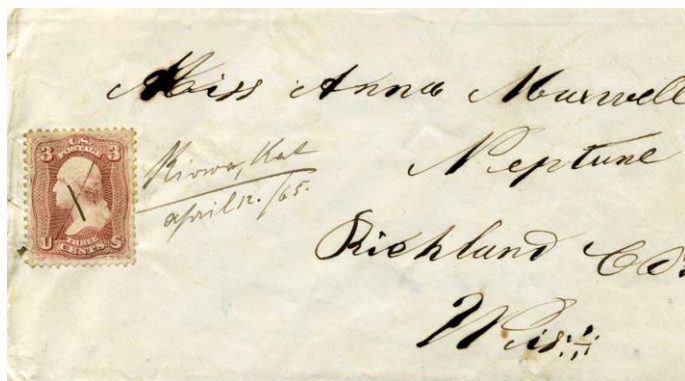 Miss Anna Maxwell
Neptune
Richland Co.
Wis.
Kiowa, Kat
april 12. /65.
3 U.S. 3
POSTAGE
U THREE S
CENTS